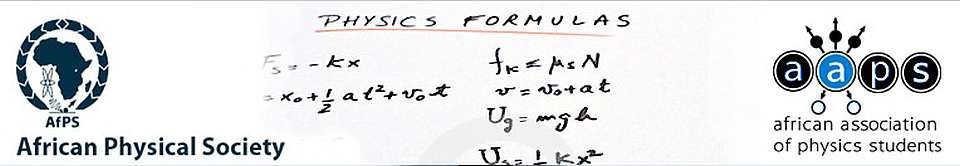 AfPS
African Physical Society
PHYSICS FORMULAS
Fs = -kx
= x₀ + ½ at² + v₀t
fk ≤ μsN
v = v₀ + at
Ug = mgh
Us = ½ kx²
aaps
african association
of physics students